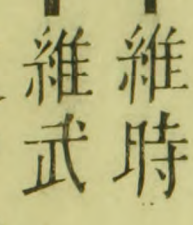 維時
維武